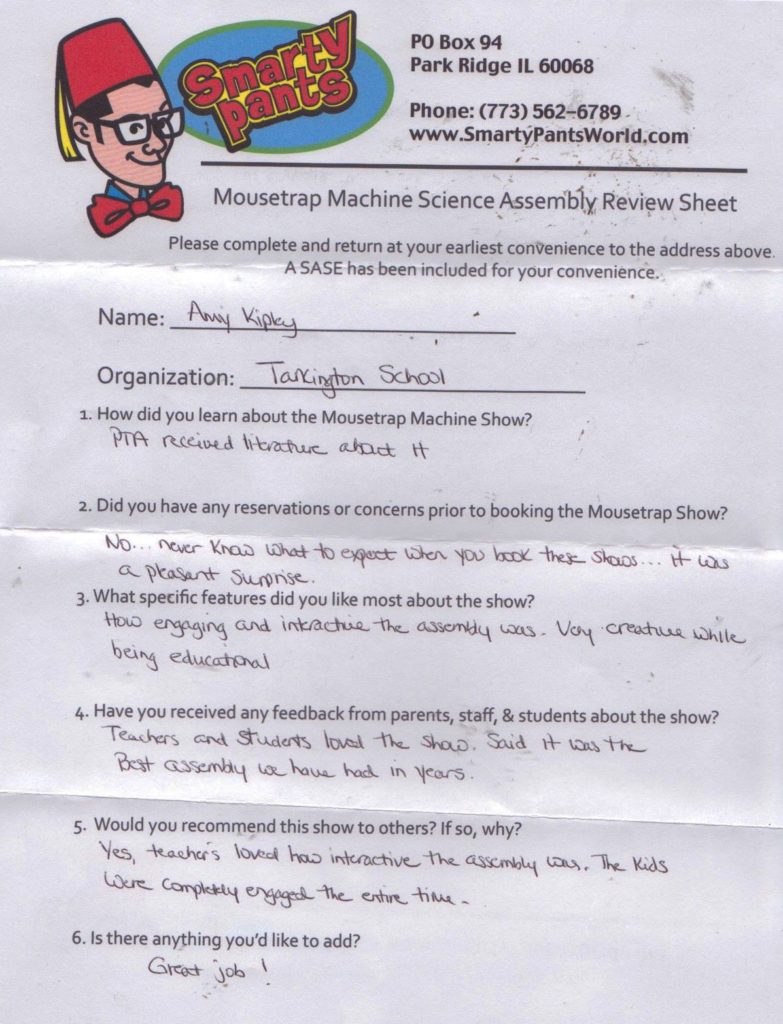 Smarty
pants
PO Box 94
Park Ridge IL 60068
Phone: (773) 562-6789
www.SmartyPantsWorld.com
Mousetrap Machine Science Assembly Review Sheet
Please complete and return at your earliest convenience to the address above.
A SASE has been included for your convenience.
Name: Amy Kipley
Organization: Tarkington School
1. How did you learn about the Mousetrap Machine Show?
PTA received literature about it
2. Did you have any reservations or concerns prior to booking the Mousetrap Show?
No... never know what to expect when you book these shows... it was
a pleasant surprise.
3. What specific features did you like most about the show?
How engaging and interactive the assembly was. Very creative while
being educational
4. Have you received any feedback from parents, staff, & students about the show?
Teachers and students loved the show. Said it was the
Best assembly we have had in years.
5. Would you recommend this show to others? If so, why?
Yes, teacher's loved how interactive the assembly was. The Kids
were completely engaged the entire time.
6. Is there anything you'd like to add?
Great job!